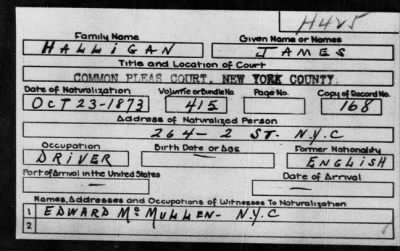 H425
Family Name Given Name or Names
HALLIGAN JAMES
Title and Location of Court
COMMON PLEAS COURT, NEW YORK COUNTY.
Date of Naturalization Volume or Bundle No. Page No. Copy of Record No.
OCT 23-1873 415 168
Address of Naturalized Person
264- 2 ST. N.Y.C
Occupation Birth Date or Age Former Nationality
DRIVER ENGLISH
Port of Arrival in the United States Date of Arrival
Names, Addresses and Occupations of Witnesses To Naturalization
1 EDWARD Mc MULLEN- N.Y.C
2